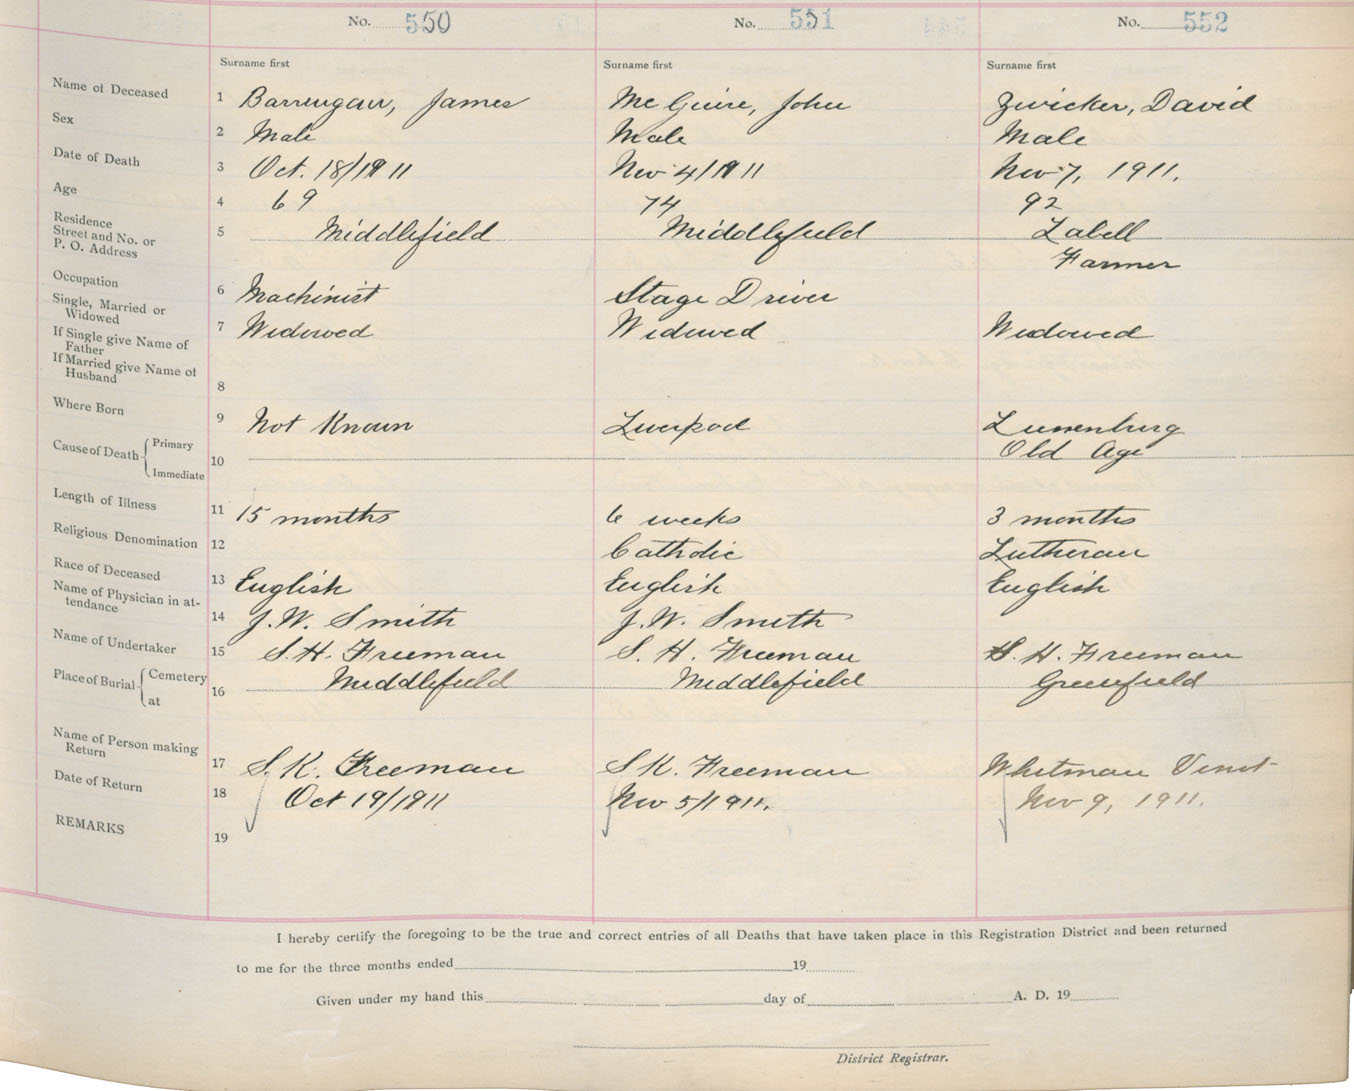 No. 550 No. 551 No. 552
Surname first Surname first Surname first
Name of Deceased 1 James McGuire, John Zwicker, David
Sex 2 Male Male Male
Date of Death 3 Oct. 18/1911 Nov 4/1911 Nov 7, 1911.
Age 4 69 74 92
Residence
Street and No. or 5 Middlefield Middlefield Labell
P. O. Address Farmer
Occupation 6 Machinist Stage Driver
Single, Married or
Widowed 7 Widowed Widowed Widowed
If Single give Name of
Father
If Married give Name of
Husband 8
Where Born 9 Not Known Liverpool Lunenburg
Cause of Death Primary Old Age
Immediate 10
Length of Illness 11 15 months 6 weeks 3 months
Religious Denomination 12 Catholic Lutheran
Race of Deceased 13 English English English
Name of Physician in at-
tendance 14 J. W. Smith J. W. Smith
Name of Undertaker 15 S. H. Freeman S. H. Freeman S. H. Freeman
Place of Burial Cemetery Middlefield Middlefield Greenfield
at 16
Name of Person making
Return 17 S. K. Freeman S K. Freeman Whitman
Date of Return 18 Oct 19/1911 Nov 5/1911. Nov 9, 1911.
REMARKS 19
I hereby certify the foregoing to be the true and correct entries of all Deaths that have taken place in this Registration District and been returned
to me for the three months ended 19
Given under my hand this day of A. D. 19
District Registrar.